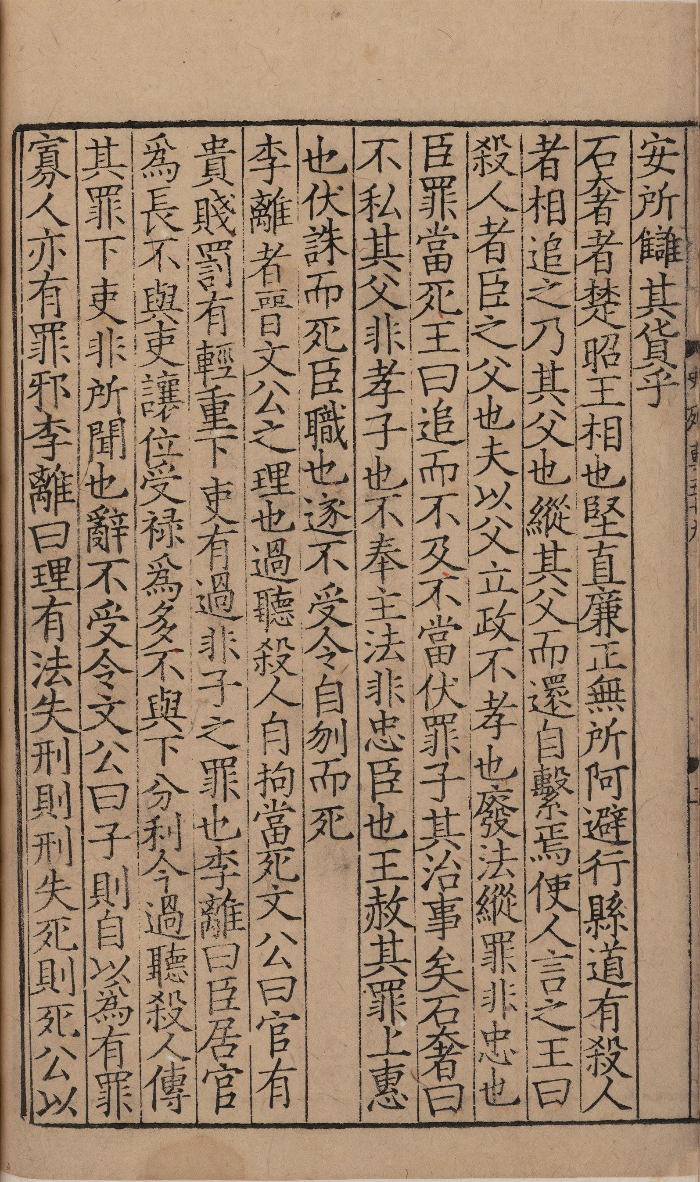 安所讎其貨乎
石奢者楚昭王相也堅直廉正無所阿避行縣道有殺人
者相追之乃其父也縱其父而還自繫焉使人言之王曰
殺人者臣之父也夫以父立政不孝也廢法縱罪非忠也
臣罪當死王曰追而不及不當伏罪子其治事矣石奢曰
不私其父非孝子也不奉主法非忠臣也王赦其罪上惠
也伏誅而死臣職也遂不受令自刎而死
李離者晉文公之理也過聽殺人自拘當死文公曰官有
貴賤罰有輕重下吏有過非子之罪也李離曰臣居官
爲長不與吏讓位受祿爲多不與下分利今過聽殺人傳
其罪下吏非所聞也辭不受令文公曰子則自以為有罪
寡人亦有罪邪李離曰理有法失刑則刑失死則死公以